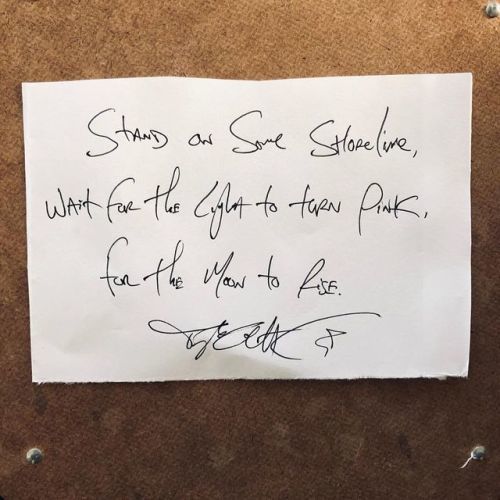 Stand on Some Shoreline,
Wait for the Light to turn Pink,
for the Moon to Rise.